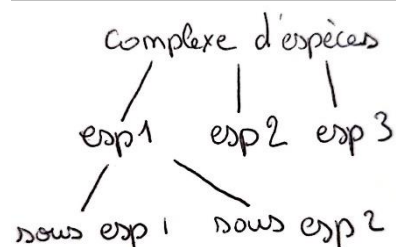 complexe d'espèces
esp1 esp2 esp3
sous esp 1 sous esp 2